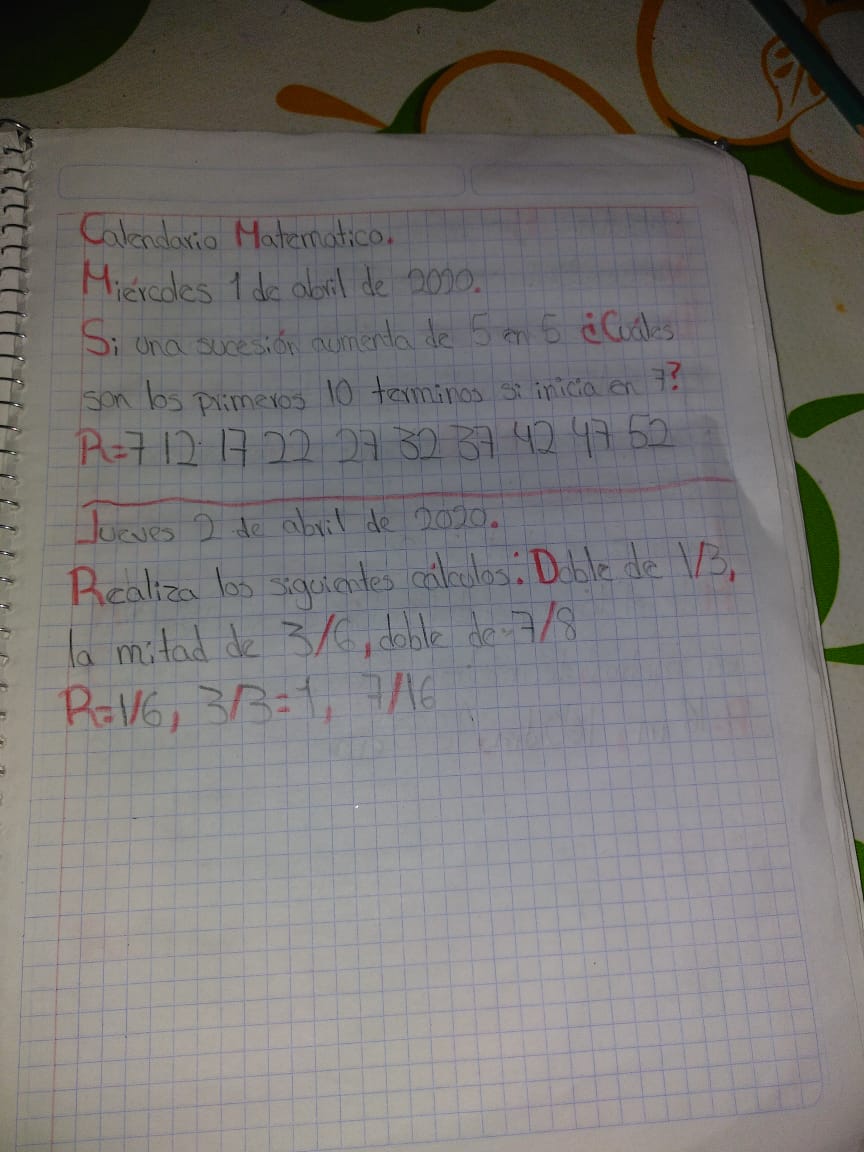 Calendario Matematico.
Miércoles 1 de abril de 2020.
Si una sucesión aumenta de 5 en 5 ¿Cuáles
son los primeros 10 terminos si inicia en 7?
R=7 12 17 22 27 32 37 42 47 52
Jueves 2 de abril de 2020.
Realiza los siguientes cálculos: Doble de 1/3,
la mitad de 3/6, doble de 7/8
R=1/6, 3/3=1, 7/16